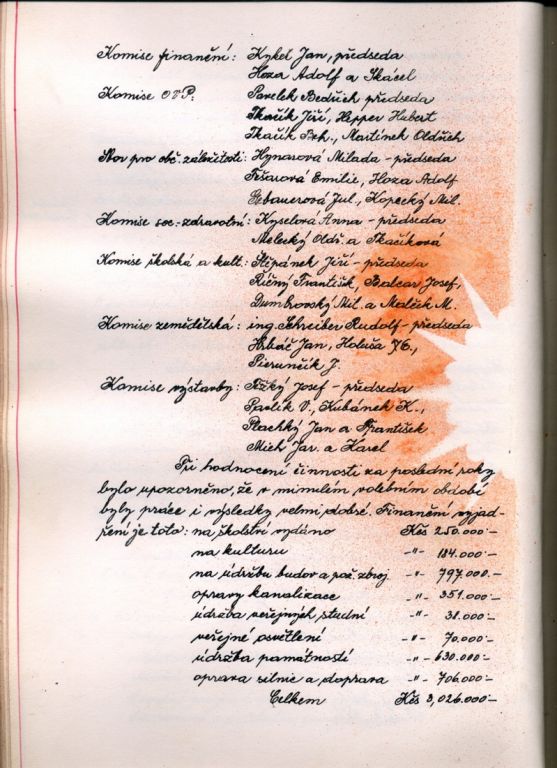 Komise finanční: Kykel Jan, předseda
Hoza Adolf a Skácel
Komise OVP: Pavelek Bedřich předseda
Tkačík Jiří, Hepper Hubert
Tkačík Boh., Martínek Oldřich
Sbor pro obč. záležitosti: Hynarová Milada - předseda
Tesarová Emilie, Hoza Adolf
Gebauerová Jul., Kopecký Mil.
Komise soc.-zdravotní: Kyselová Anna - předseda
Melecký Oldř. a Tkačíková
Komise školská a kult.: Štipánek Jiří - předseda
Říčný František, Balcar Josef,
Dumbrovský Mil. a Malček M.
Komise zemědělská: ing. Schreiber Rudolf - předseda
Hrbáč Jan, Holuša
Pierunčík J.
Komise výstavby: Těžký Josef - předseda
Pavlík V., Kubánek K.,
Plachký Jan a František
Mich Jar. a Karel
Při hodnocení činnosti za poslední roky
bylo upozorněno, že v minulém volebním období
byly práce i výsledky velmi dobré. Finanční vyjad-
ření je toto: na školství vydáno Kčs 250.000.-
na kulturu -"- 184.000.-
na údržbu budov a pož. zbroj -"- 797.000.-
opravy kanalizace -"- 351.000.-
údržba veřejných studní -"- 38.000.-
veřejné osvětlení -"- 70.000.-
údržba památností -"- 630.000.-
oprava silnic a doprava -"- 706.000.-
Celkem Kčs 3,026.000.-